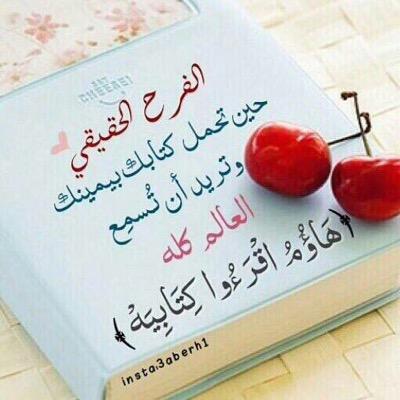 EAT
CHEERE!
الفرح الحقيقي
حين تحمل كتابك بيمينك
وتريد أن تُسمِع
العالم كله
﴿هَاؤُمُ اقْرَءُوا كِتَابِيَهْ﴾
insta:3aberh1